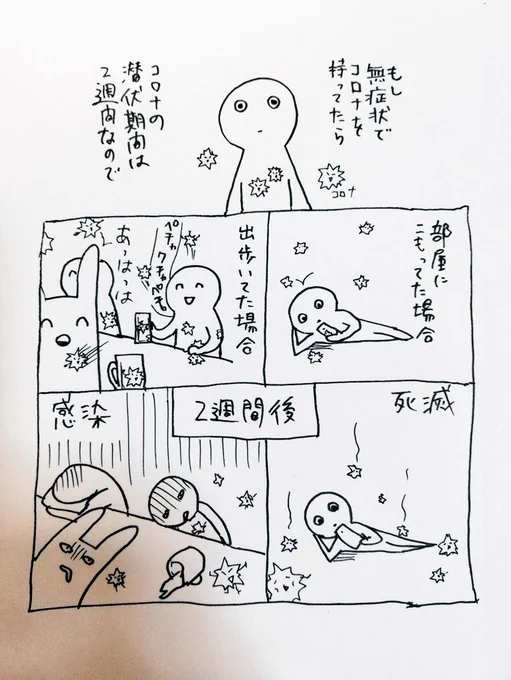 もし
無症状で
コロナを
持ってたら
コロナ
コロナの
潜伏期間は
2週間なので
部屋に
こもってた場合
出歩いてた場合
ペチャクチャペチャ
あっはっは
2週間後
死滅
感染